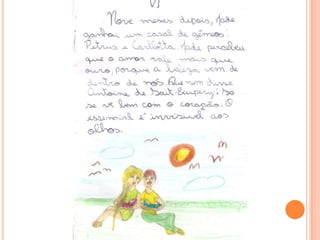 VI
Nove meses depois, Jade
ganhou um casal de gêmeos:
Petrus e Carlotta. Jade percebeu
que o amor vale mais que
ouro, porque a beleza vem de
dentro de nós. Bem disse
Antoine de Saint-Exupery: Só
se vê bem com o coração. O
essencial é invisível aos
olhos.